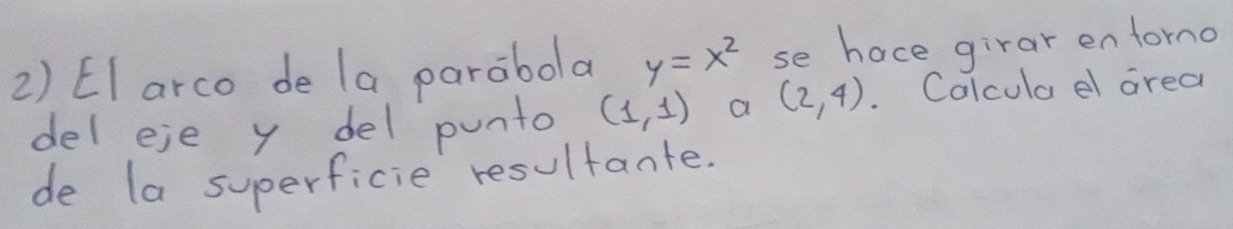 2) El arco de la parábola y=x² se hace girar en torno
del eje y del punto (1,1) a (2,4). Calcula el área
de la superficie resultante.